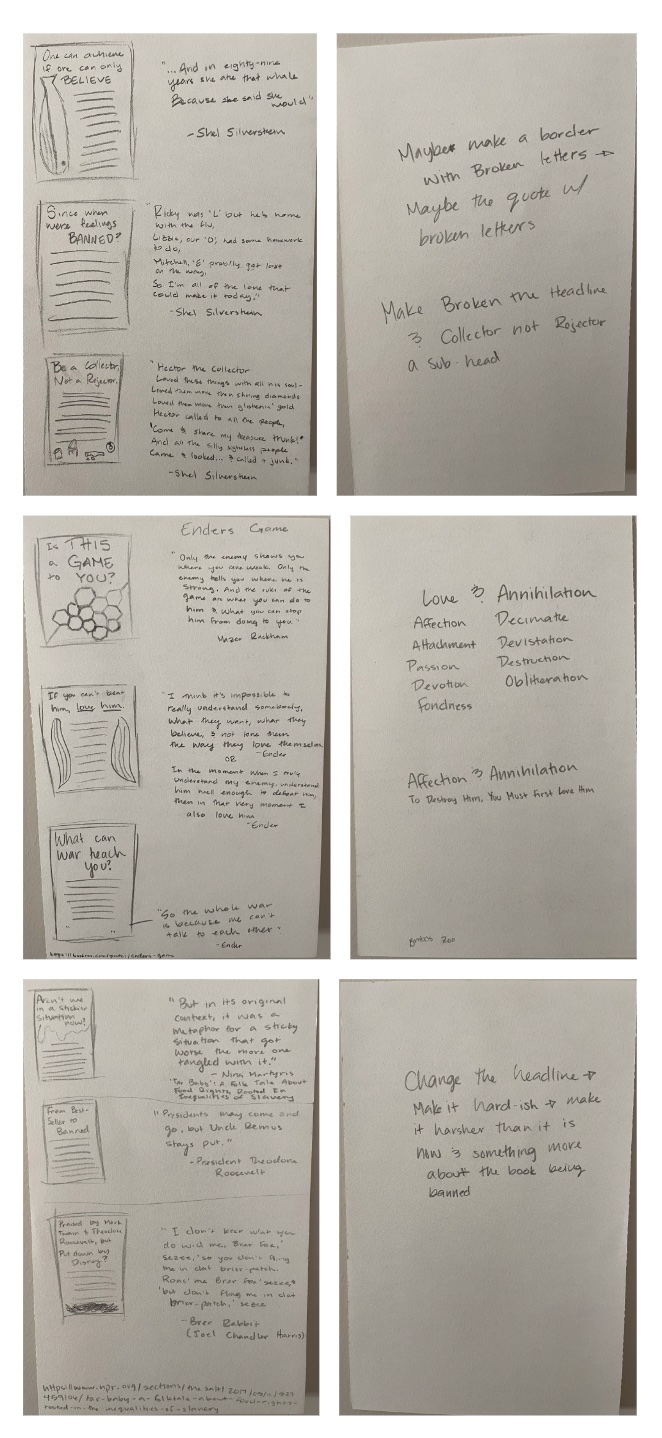 One can achieve
if one can only
BELIEVE
"...And in eighty-nine
years she ate that whale
Because she said she
would"
-Shel Silverstein
Since when
were feelings
BANNED?
"Ricky was 'L' but he's home
with the flu,
Lizzie, our 'O', had some homework
to do,
Mitchell, 'E' prob'ly got lost
on the way,
So I'm all of the love that
could make it today."
-Shel Silverstein
Be a Collector,
Not a Rejector.
"Hector the Collector
Loved these things with all his soul-
Loved them more then shining diamonds
Loved them more than glistenin' gold
Hector called to all the people,
'Come & share my treasure trunk!'
And all the silly sightless people
Came & looked... & called it junk."
-Shel Silverstein
Maybe make a border
with Broken letters →
Maybe the quote w/
broken letters
Make Broken the Headline
& Collector not Rejector
a sub-head
Is THIS
a GAME
to YOU?
Enders Game
"Only the enemy shows you
where you are weak. Only the
enemy tells you where he is
strong. And the rules of the
game are what you can do to
him & what you can stop
him from doing to you."
Mazer Rackham
If you can't beat
him, love him.
"I think it's impossible to
really understand somebody,
what they want, what they
believe, & not love them
the way they love themselves
-Ender
OR
In the moment when I truly
understand my enemy, understand
him well enough to defeat him,
then in that very moment I
also love him
-Ender
What can
war teach
you?
"So the whole war
is because we can't
talk to each other"
-Ender
Love & Annihilation
Affection Decimate
Attachment Devistation
Passion Destruction
Devotion Obliteration
Fondness
Affection & Annihilation
To Destroy Him, You Must First Love Him
Aren't we
in a Sticky
Situation
now?
"But in its original
context, it was a
metaphor for a sticky
situation that got
worse the more one
tangled with it."
- Nina Martyris
'Tar Baby': A Folk Tale About
Food Rights, Rooted In
Inequalities of Slavery
From Best-
Seller to
Banned
"Presidents may come and
go, but Uncle Remus
stays put."
-President Theodore
Roosevelt
Praised by Mark
Twain & Theodore
Roosevelt, but
Put down by
Disney?
"I don't keer w'at you
do wid me, Brer Fox,'
sezee, 'so you don't fling
me in dat brier-patch.
Roas' me Brer Fox' sezee,
'but don't fling me in dat
brier-patch,' sezee
-Brer Rabbit
(Joel Chandler Harris)
Change the headline →
Make it hard-ish → make
it harsher than it is
now & something more
about the book being
banned